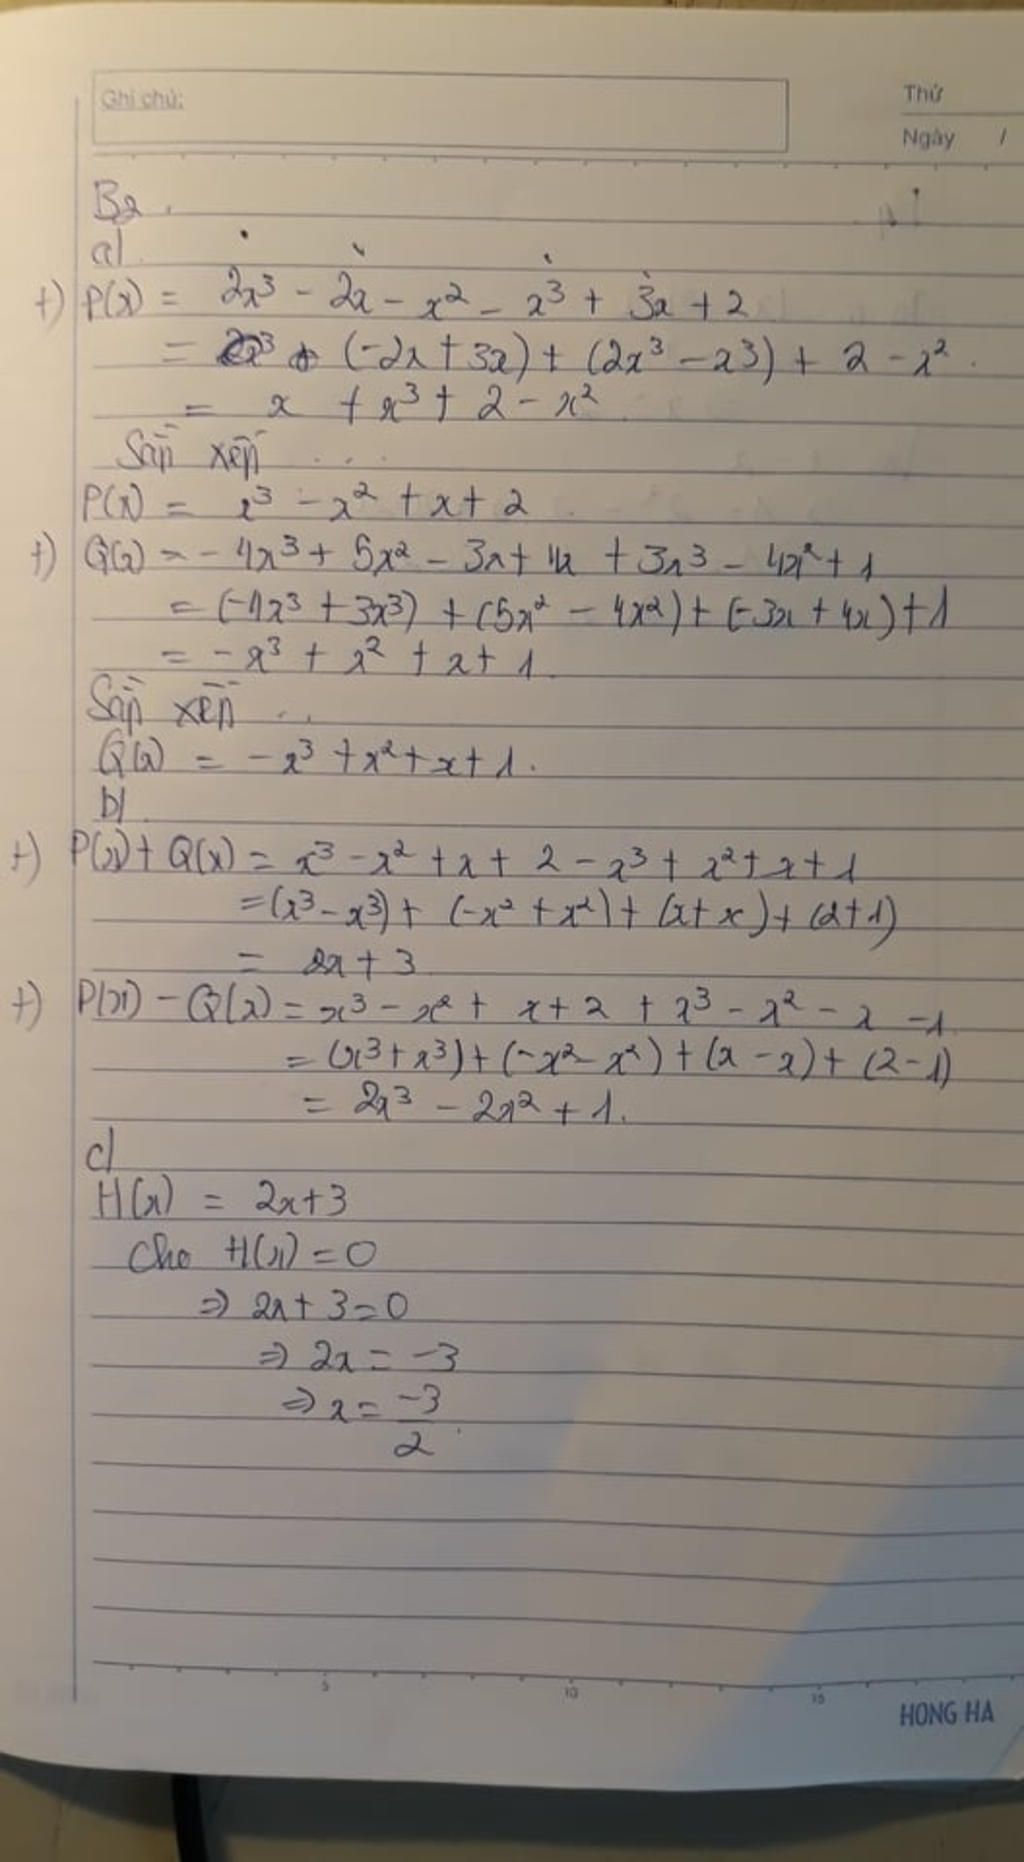 Ghi chú:
Thứ
Ngày /
B2.
a)
+) P(x) = 2x³ - 2x - x² - x³ + 3x + 2
= (-2x + 3x) + (2x³ - x³) + 2 - x².
= x + x³ + 2 - x²
Sắp xếp ...
P(x) = x³ - x² + x + 2
+) Q(x) = - 4x³ + 5x² - 3x + 4x + 3x³ - 4x² + 1
= (-4x³ + 3x³) + (5x² - 4x²) + (-3x + 4x) + 1
= - x³ + x² + x + 1.
Sắp xếp ...
Q(x) = - x³ + x² + x + 1.
b)
+) P(x) + Q(x) = x³ - x² + x + 2 - x³ + x² + x + 1
= (x³ - x³) + (-x² + x²) + (x + x) + (2 + 1)
= 2x + 3
+) P(x) - Q(x) = x³ - x² + x + 2 + x³ - x² - x - 1
= (x³ + x³) + (-x² - x²) + (x - x) + (2 - 1)
= 2x³ - 2x² + 1.
c)
H(x) = 2x + 3
Cho H(x) = 0
⇒ 2x + 3 = 0
⇒ 2x = -3
⇒ x = -3/2.
5 10 15
HONG HA